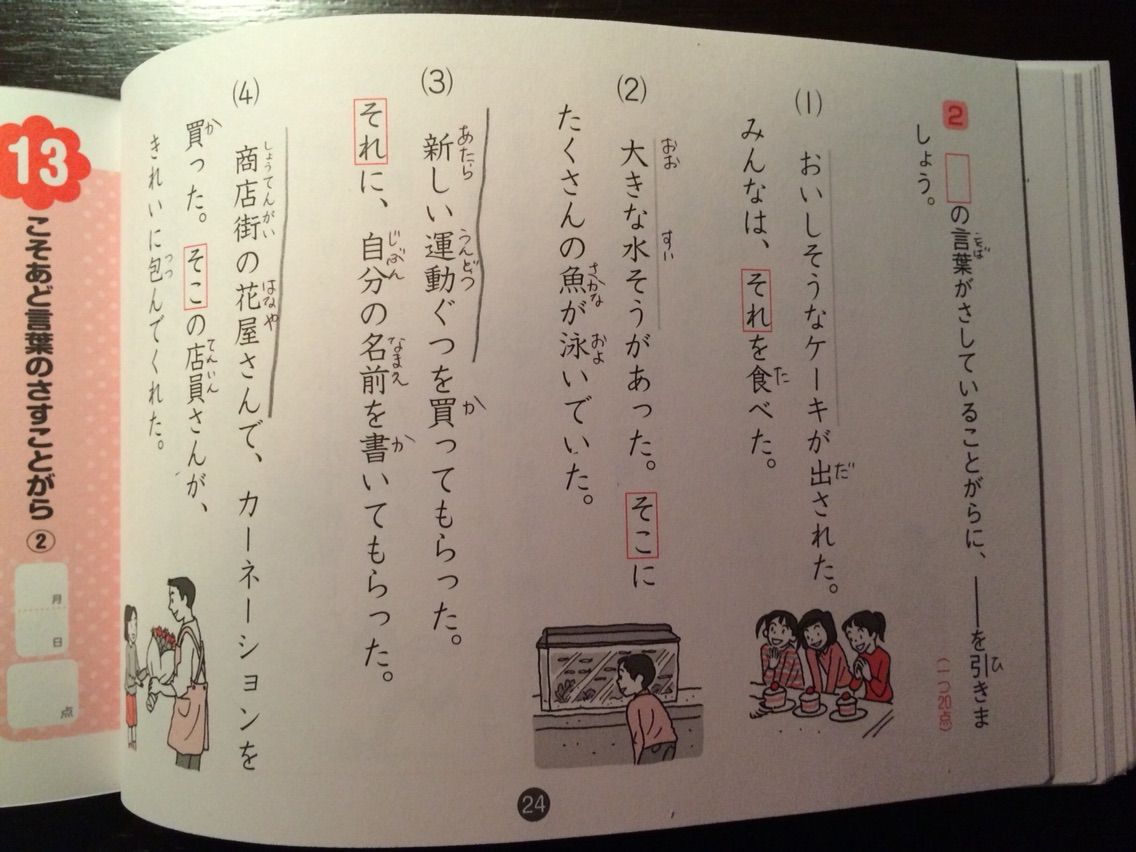 2 □の言葉がさしていることがらに、――を引きま
しょう。
(一つ20点)
(1) おいしそうなケーキが出された。
みんなは、それを食べた。
(2) 大きな水そうがあった。そこに
たくさんの魚が泳いでいた。
(3) 新しい運動ぐつを買ってもらった。
それに、自分の名前を書いてもらった。
(4) 商店街の花屋さんで、カーネーションを
買った。そこの店員さんが、
きれいに包んでくれた。
24
13 こそあど言葉のさすことがら②
月
日
点